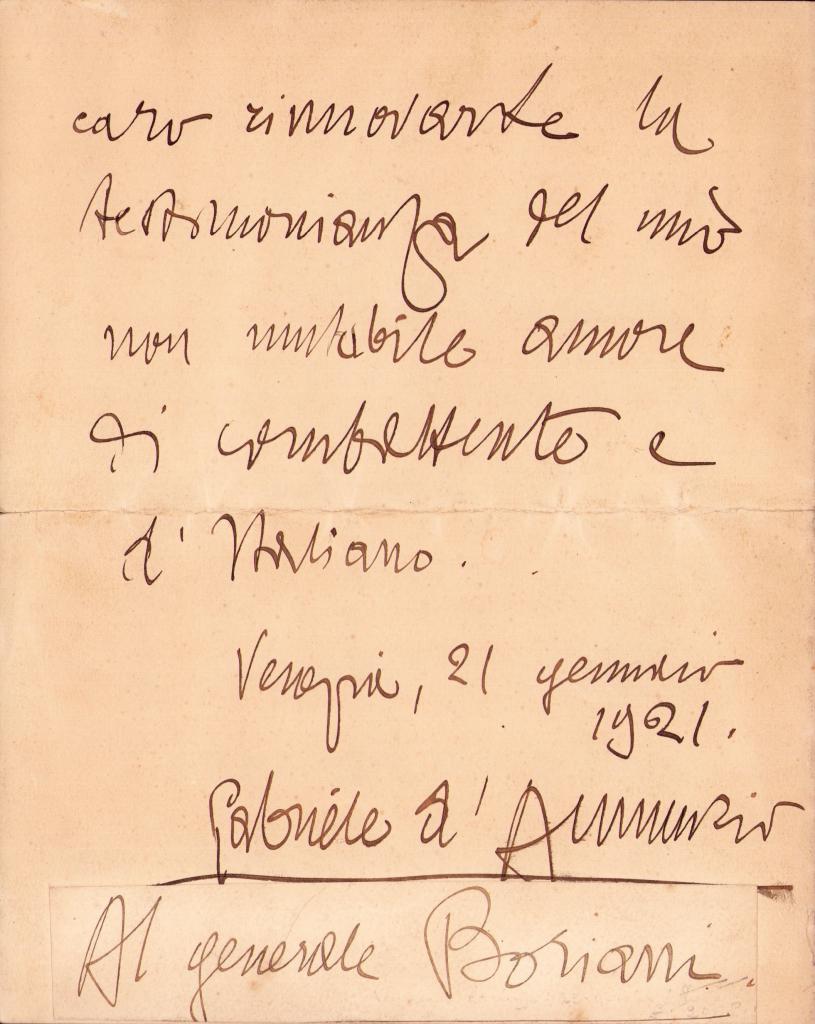 caro rinnovarte la
testimonianza del mio
non mutabile amore
di combattente e
d'Italiano.
Venezia, 21 gennaio
1921.
Gabriele d'Annunzio
Al generale Boriani.